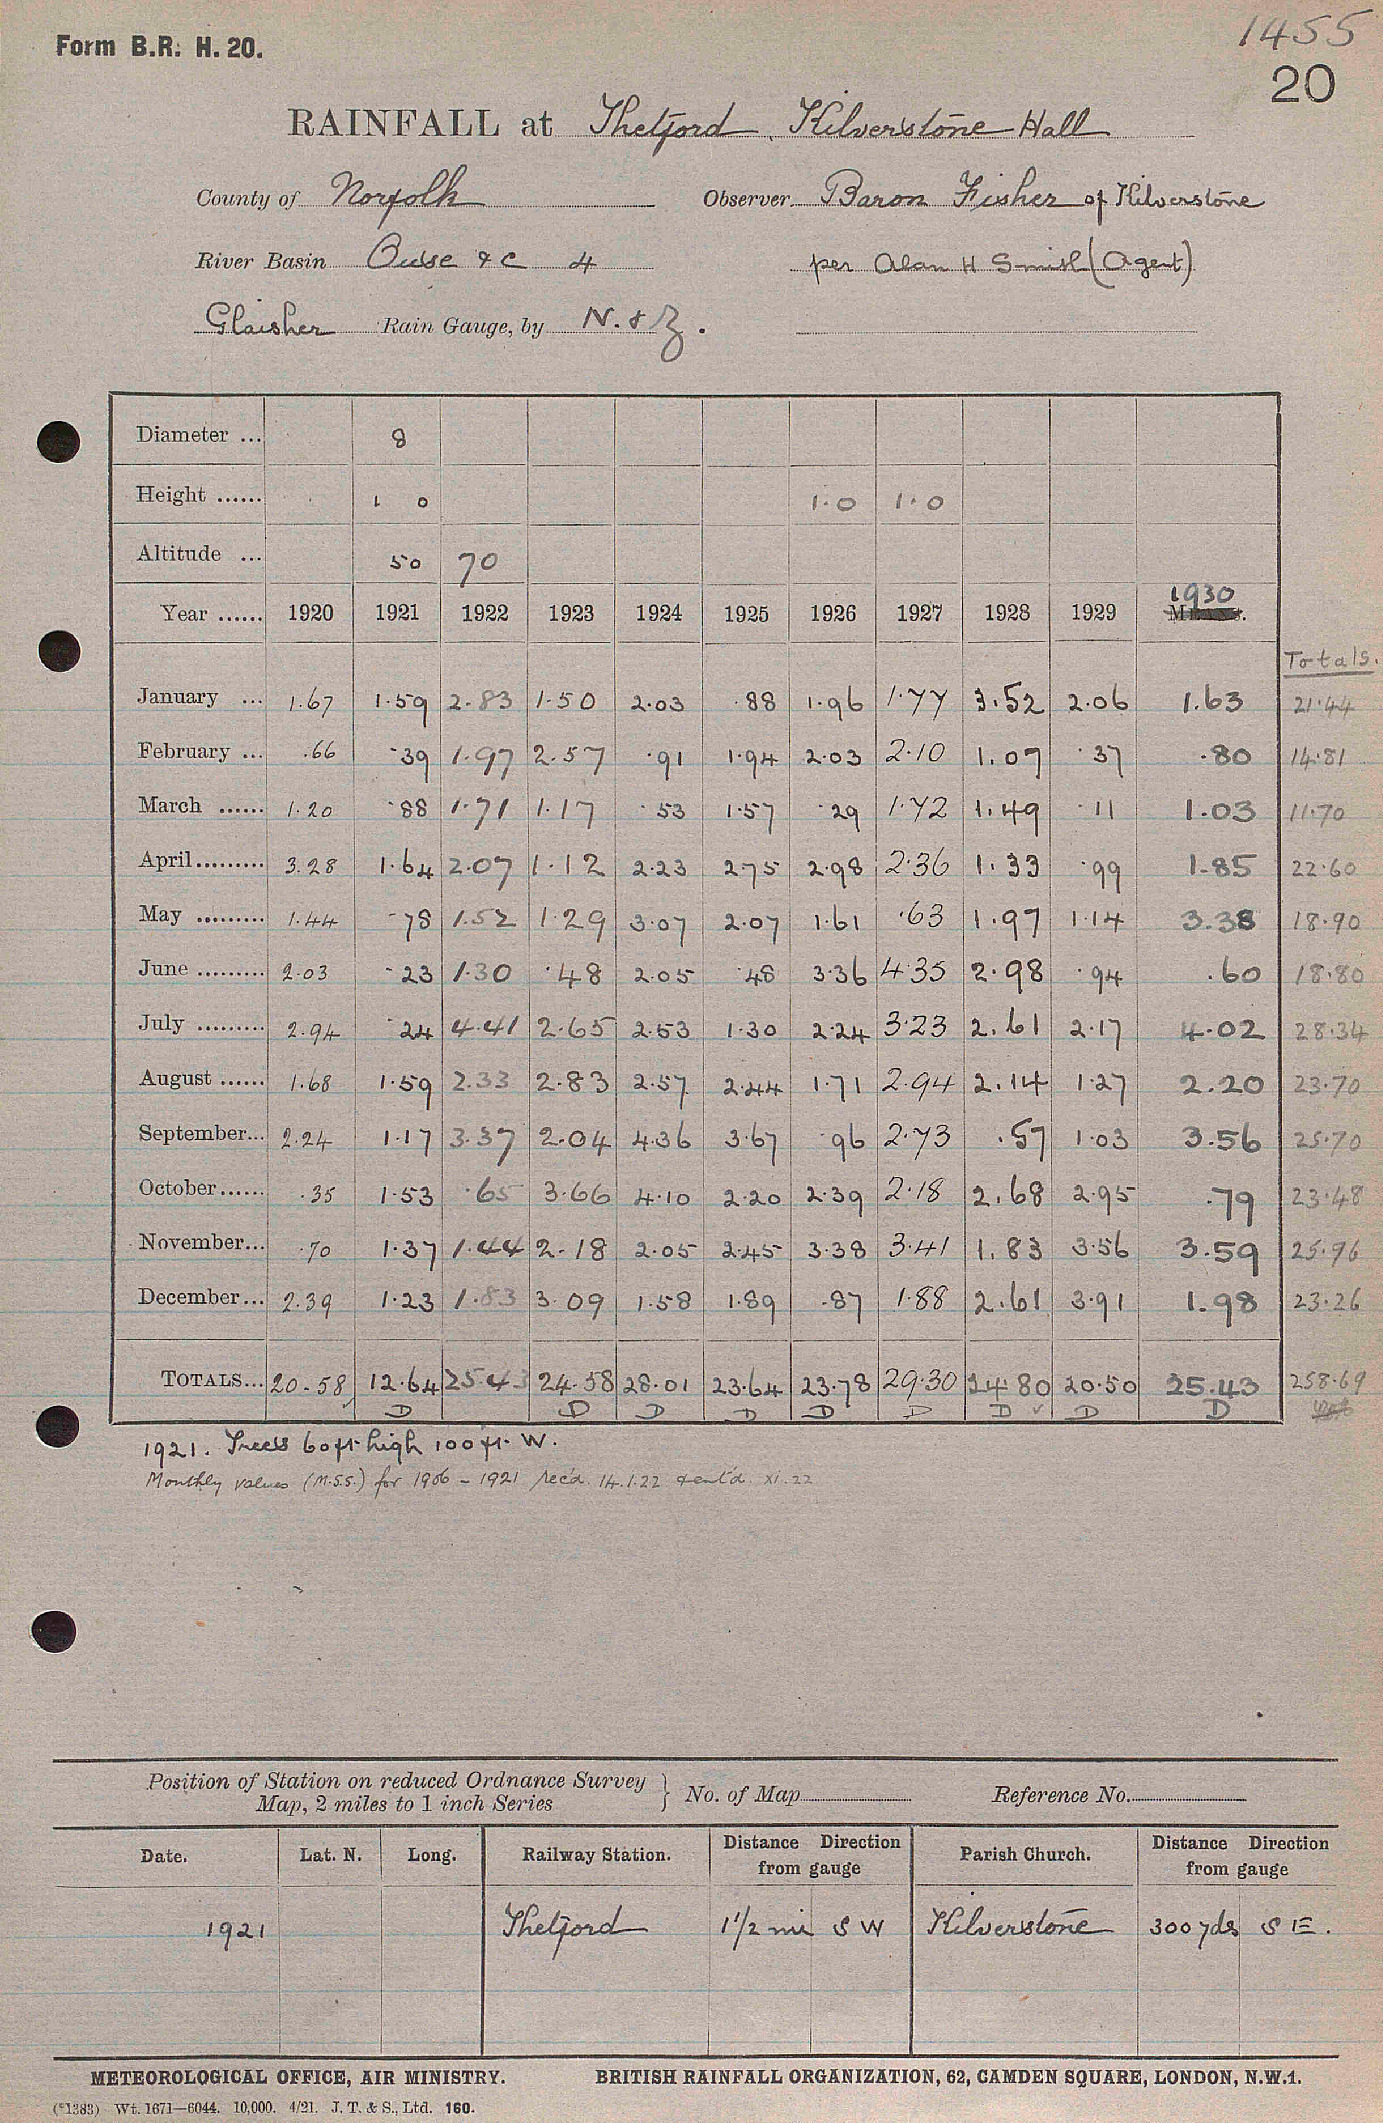 1455
Form B.R. H. 20.
20
RAINFALL at Thetford, Kilverstone Hall
County of Norfolk Observer Baron Fisher of Kilverstone
River Basin Ouse & C 4 per Alan H Smith (Agent)
Glaisher Rain Gauge, by N. & Z.
Diameter ... 8
Height ...... 1 0 1.0 1.0
Altitude ... 50 70
1930
Year ...... 1920 1921 1922 1923 1924 1925 1926 1927 1928 1929
Totals.
January ... 1.67 1.59 2.83 1.50 2.03 .88 1.96 1.77 3.52 2.06 1.63 21.44
February ... .66 .39 1.97 2.57 .91 1.94 2.03 2.10 1.07 .37 .80 14.81
March ...... 1.20 .88 1.71 1.17 .53 1.57 .29 1.72 1.49 .11 1.03 11.70
April......... 3.28 1.64 2.07 1.12 2.23 2.75 2.98 2.36 1.33 .99 1.85 22.60
May ......... 1.44 .78 1.52 1.29 3.07 2.07 1.61 .63 1.97 1.14 3.38 18.90
June ......... 2.03 .23 1.30 .48 2.05 .48 3.36 4.35 2.98 .94 .60 18.80
July ......... 2.94 .24 4.41 2.65 2.53 1.30 2.24 3.23 2.61 2.17 4.02 28.34
August ...... 1.68 1.59 2.33 2.83 2.57 2.44 1.71 2.94 2.14 1.27 2.20 23.70
September... 2.24 1.17 3.37 2.04 4.36 3.67 .96 2.73 .57 1.03 3.56 25.70
October...... .35 1.53 .65 3.66 4.10 2.20 2.39 2.18 2.68 2.95 .79 23.48
November... .70 1.37 1.44 2.18 2.05 2.45 3.38 3.41 1.83 3.56 3.59 25.96
December... 2.39 1.23 1.83 3.09 1.58 1.89 .87 1.88 2.61 3.91 1.98 23.26
TOTALS... 20.58 12.64 25.43 24.58 28.01 23.64 23.78 29.30 24.80 20.50 25.43 258.69
D D D D D D D D D
1921. Trees 60 ft. high 100 ft. W.
Monthly values (M.S.S.) for 1906 – 1921 rec'd. 14.1.22 & ent'd. xi.22
Position of Station on reduced Ordnance Survey
Map, 2 miles to 1 inch Series } No. of Map Reference No.
Date. Lat. N. Long. Railway Station. Distance from gauge Direction Parish Church. Distance from gauge Direction
1921 Thetford 1 1/2 mi S W Kilverstone 300 yds S E.
METEOROLOGICAL OFFICE, AIR MINISTRY. BRITISH RAINFALL ORGANIZATION, 62, CAMDEN SQUARE, LONDON, N.W.1.
(*1383) Wt. 1671—6044. 10,000. 4/21. J. T. & S., Ltd. 160.